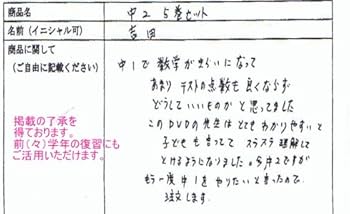 商品名
中2 5巻セット
名前（イニシャル可）
吉田
商品に関して
（ご自由に記載ください）
中1で数学がきらいになって
あまりテストの点数も良くならず
どうしていいものかと思ってました
このDVDの先生はとてもわかりやすいと
子どもも言ってスラスラ理解して
とけるようになりました。今中2ですが
もう一度中1をやりたいと言ったので、
注文します。
掲載の了承を
得ております。
前（々）学年の復習にも
ご活用いただけます。